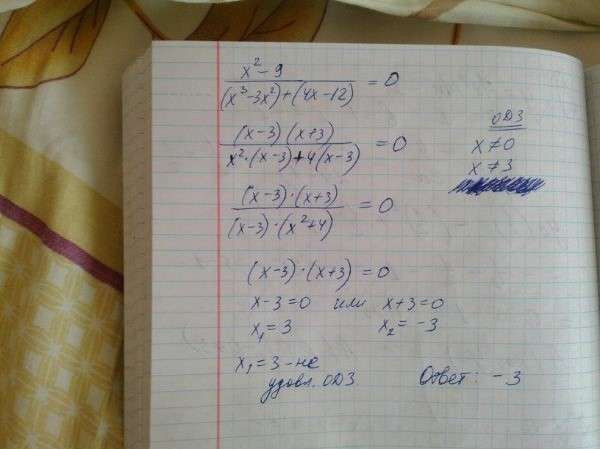 x² - 9 / (x³ - 3x²) + (4x - 12) = 0
(x - 3)(x + 3) / x² · (x - 3) + 4(x - 3) = 0
(x - 3) · (x + 3) / (x - 3) · (x² + 4) = 0
(x - 3) · (x + 3) = 0
x - 3 = 0 или x + 3 = 0
x₁ = 3 x₂ = -3
x₁ = 3 - не
удовл. ОДЗ
Ответ: -3
ОДЗ
x ≠ 0
x ≠ 3